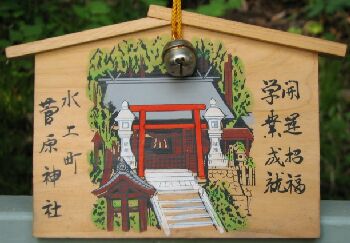 開運招福
学業成就
水上町
菅原神社